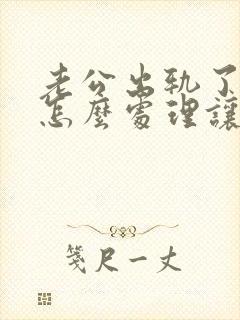 老公出轨了
怎麼處理讓
箋尺一丈